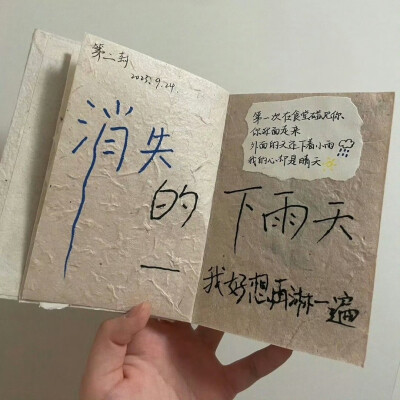 第二封
2025.9.24
消失
的
下雨天
第一次在食堂碰见你
你迎面走来
外面的天还下着小雨
我的心却是晴天
我好想再淋一遍